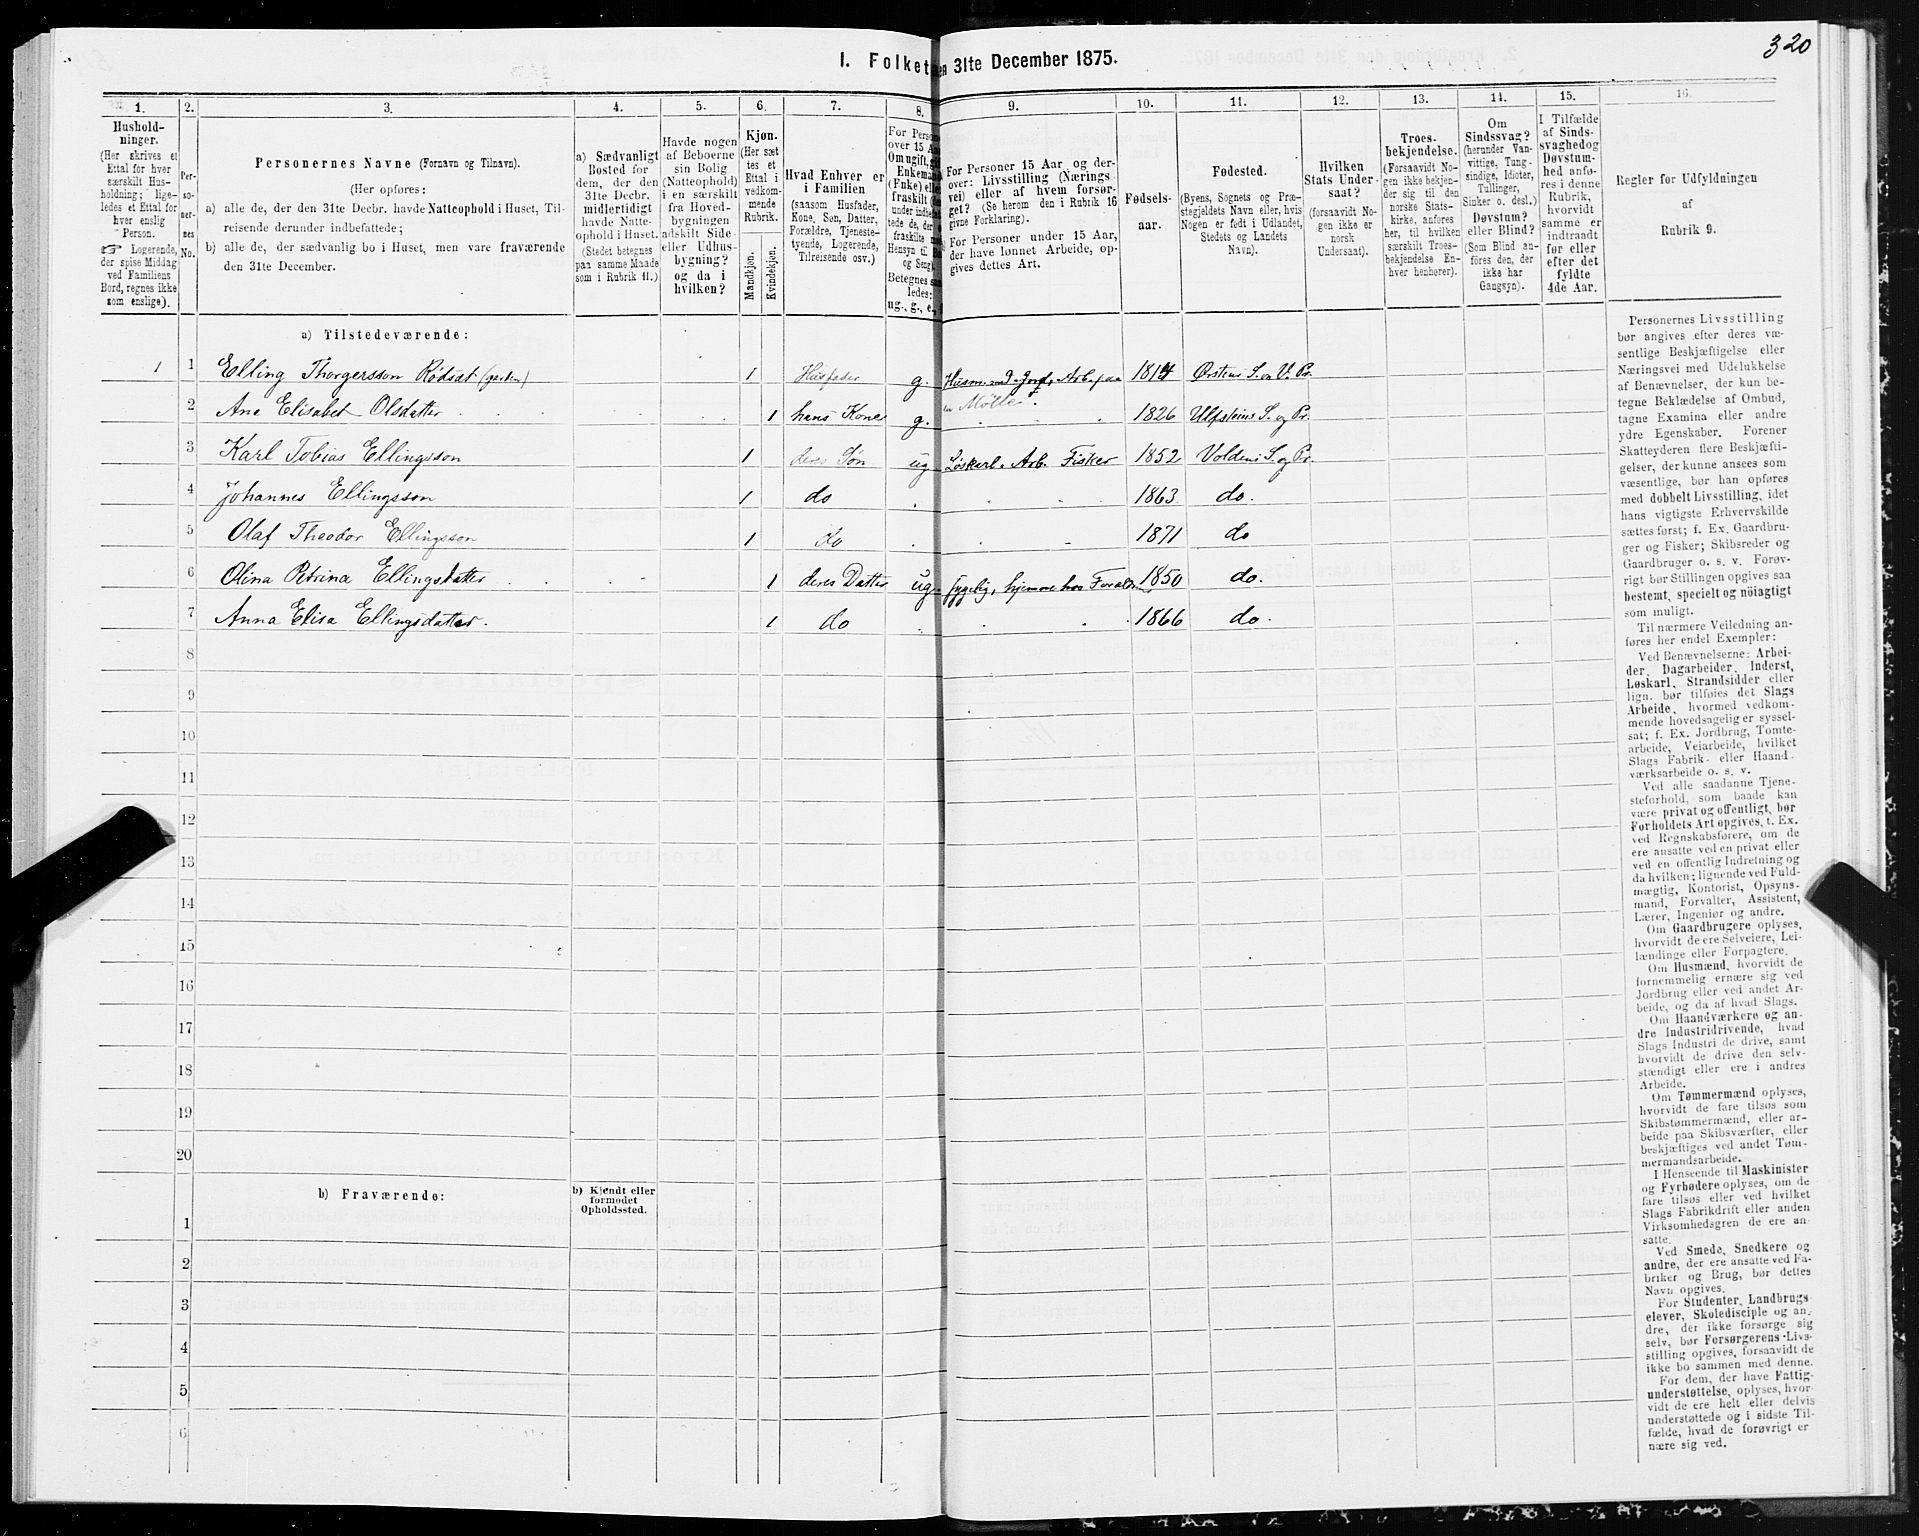 320
I. Folketællingen 31te December 1875.
1. 2. 3. 4. 5. 6. 7. 8. 9. 10. 11. 12. 13. 14. 15. 16.
Hushold-
ninger.
(Her skrives et
Ettal for hver
særskilt Hus-
holdning; lige-
ledes et Ettal for
hver enslig
Person.
☞ Logerende,
der spise Middag
ved Familiens
Bord, regnes ikke
som enslige).
Per-
so-
ner-
nes
No.
Personernes Navne (Fornavn og Tilnavn).
(Her opføres:
a) alle de, der den 31te Decbr. havde Natteophold i Huset, Til-
reisende derunder indbefattede;
b) alle de, der sædvanlig bo i Huset, men vare fraværende
den 31te December.
a) Sædvanligt
Bosted for
dem, der den
31te Decbr.
midlertidigt
havde Natte-
ophold i Huset.
(Stedet betegnes
paa samme Maade
som i Rubrik 11.)
Havde nogen
af Beboerne
sin Bolig
(Natteophold)
i en særskilt
fra Hoved-
bygningen
adskilt Side-
eller Udhus-
bygning?
og da i
hvilken?
Kjøn.
(Her sæt
tes et
Ettal i
vedkom-
mende
Rubrik.
Mandkjøn.
Kvindekjøn.
Hvad Enhver er
i Familien
(saasom Husfader,
Kone, Søn, Datter,
Forældre, Tjeneste-
tyende, Logerende,
Tilreisende osv.)
For Person
over 15 Aar
Om ugift, g
Enkemand
(Enke) elle
fraskilt
under indbe
tede de, der
fraskilte m
Hensyn til
og Seng).
Betegnes saa
ledes:
ug., g., e.,
For Personer 15 Aar og der-
over: Livsstilling (Nærings
vei) eller af hvem forsør-
get? (Se herom den i Rubrik 16
givne Forklaring).
For Personer under 15 Aar,
der have lønnet Arbeide, op-
gives dettes Art.
Fødsels-
aar.
Fødested.
(Byens, Sognets og Præ-
stegjeldets Navn eller, hvis
Nogen er født i Udlandet,
Stedets og Landets
Navn).
Hvilken
Stats Under-
saat?
(forsaavidt No-
gen ikke er
norsk
Undersaat).
Troes-
bekjendelse.
(Forsaavidt No-
gen ikke bekjen-
der sig til den
norske Stats-
kirke, anføres
her, til hvilken
særskilt Troes-
bekjendelse En-
hver henhører).
Om
Sindssvag?
(herunder Van-
vittige, Tung-
sindige, Idioter,
Tullinger,
Sinker o. desl.)
Døvstum?
eller Blind?
(Som Blind an-
føres den, der
ikke har
Gangsyn).
I Tilfælde
af Sinds-
svaghed og
Døvstum-
hed anfø-
res i denne
Rubrik,
hvorvidt
samme er
indtraadt
før eller
efter det
fyldte
4de Aar.
Regler for Udfyldningen
af
Rubrik 9.
a) Tilstedeværende:
1 1 Elling Thorgersson Rødsæt (garden) 1 Husfader g. Husm. med Jord, Arb. paa 1814 Ørstens S. og V. Pr.
en Mølle.
2 Ane Elisabet Olsdatter 1 hans Kone g. 1826 Ulfsteins S. og Pr.
3 Karl Tobias Ellingsson 1 deres Søn ug. Løskarl. Arb. Fisker 1852 Voldens S. og Pr.
4 Johannes Ellingsson 1 do 1863 do.
5 Olaf Theodor Ellingsson 1 do 1871 do
6 Olina Petrina Ellingsdatter 1 deres Datter ug. sygelig, hjemme hos Foræld. 1850 do.
7 Anna Elisa Ellingsdatter. 1 do 1866 do.
8
9
10
11
12
13
14
15
16
17
18
19
20
b) Fraværende:
b) Kjendt eller
formodet
Opholdssted.
1
2
3
4
5
6
Personernes Livsstilling
bør angives efter deres væ-
sentlige Beskjæftigelse eller
Næringsvei med Udelukkelse
af Benævnelser, der kun be-
tegne Beklædelse af Ombud,
tagne Examina eller andre
ydre Egenskaber. Forener
Skatteyderen flere Beskjæfti-
gelser, der kunne ansees som
væsentlige, bør han opføres
med dobbelt Livsstilling, idet
hans vigtigste Erhvervskilde
sættes først; f. Ex. Gaardbru-
ger og Fisker; Skibsreder og
Gaardbruger o. s. v. Forøv-
rigt bør Stillingen opgives saa
bestemt, specielt og nöiagtigt
som muligt.
Til nærmere Veiledning an-
føres her endel Exempler:
Ved Benævnelserne: Arbei-
der, Dagarbeider, Inderst,
Løskarl, Strandsidder eller
lign. bør tilføies det Slags
Arbeide, hvormed vedkom-
mende hovedsagelig er syssel-
sat; f. Ex. Jordbrug, Tomte-
arbeide, Veiarbeide, hvilket
Slags Fabrik- eller Haand-
værksarbeide o. s. v.
Ved alle saadanne Tjene-
steforhold, som baade kan
være privat og offentligt, bør
Forholdets Art opgives, t. Ex.
ved Regnskabsførere, om de
ere ansatte ved en privat eller
ved en offentlig Indretning og
da hvilken; lignende ved Fuld-
mægtig, Kontorist, Opsyns-
mand, Forvalter, Assistent,
Lærer, Ingeniør og andre.
Om Gaardbrugere oplyses,
hvorvidt de ere Selveiere, Lei-
lændinge eller Forpagtere.
Om Husmænd, hvorvidt de
fornemmelig ernære sig ved
Jordbrug eller ved andet Ar-
beide, og da af hvad Slags.
Om Haandværkere og an-
dre Industridrivende, hvad
Slags Industri de drive, samt
hvorvidt de drive den selv-
stændigt eller ere i andres
Arbeide.
Om Tømmermænd oplyses,
hvorvidt de fare tilsøs som
Skibstømmermænd, eller ar-
beide paa Skibsværfter, eller
beskjæftiges ved andet Tøm-
mermandsarbeide.
I Henseende til Maskinister
og Fyrbødere oplyses, om de
fare tilsøs eller ved hvilket
Slags Fabrikdrift eller anden
Virksomhedsgren de ere an-
satte.
Ved Smede, Snedkere og
andre, der ere ansatte ved Fa-
briker og Brug, bør dettes
Navn opgives.
For Studenter, Landbrugs-
elever, Skoledisciple og an-
dre, der ikke forsørge sig
selv, bør Forsørgerens Livs-
stilling opgives, forsaavidt de
ikke bo sammen med denne.
For dem, der have Fattig-
understøttelse, oplyses, hvor-
vidt de ere helt eller delvis
understøttede og i sidste Til-
fælde, hvad de forøvrigt er
nære sig ved.